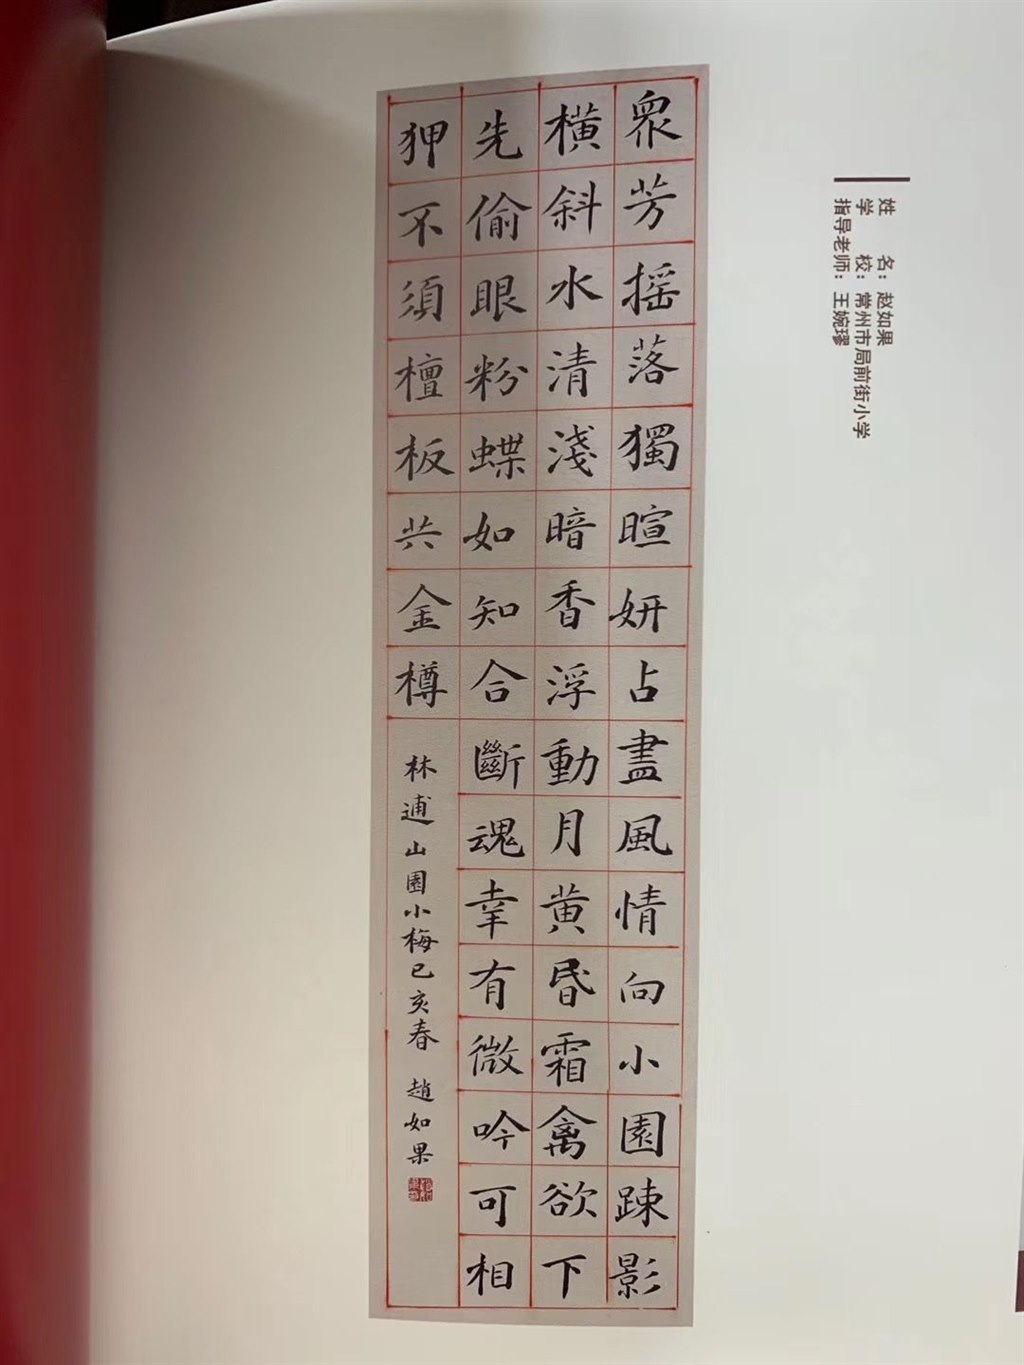 眾芳摇落獨暄妍占盡風情向小園踈影
横斜水清淺暗香浮動月黄昏霜禽欲下
先偷眼粉蝶如知合斷魂幸有微吟可相
狎不須檀板共金樽
林逋山園小梅己亥春 趙如果
姓 名：赵如果
学 校：常州市局前街小学
指导老师：王婉璆